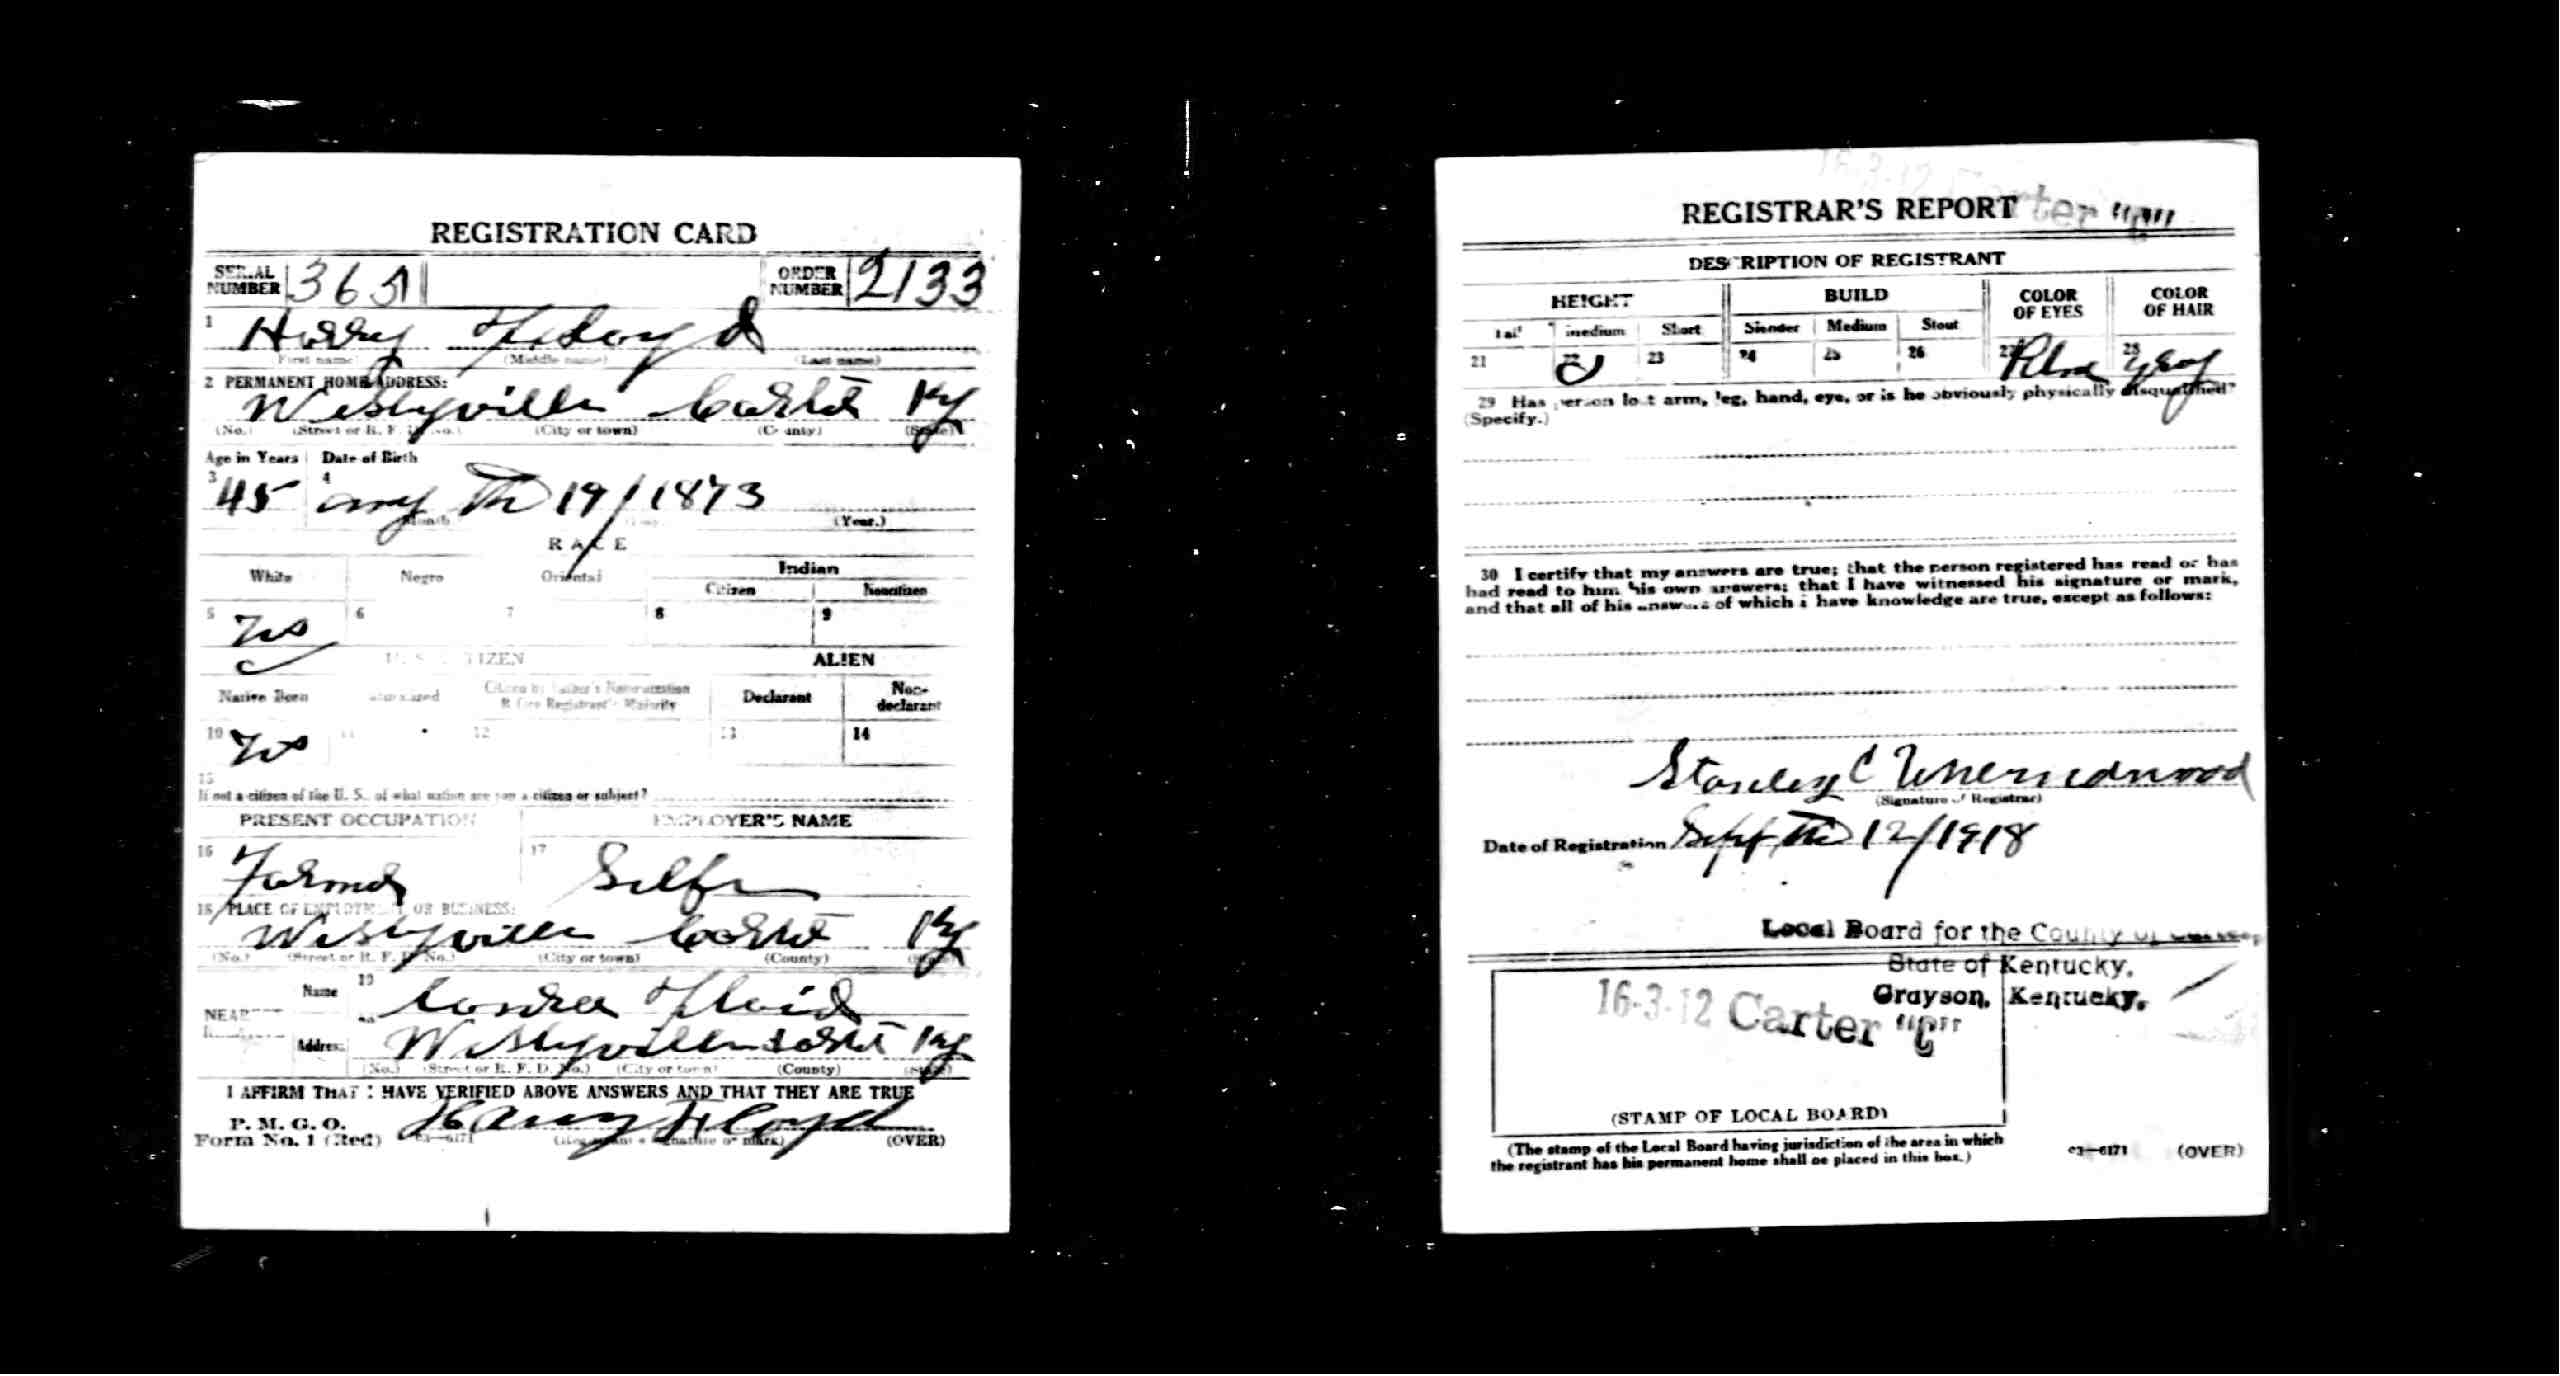 REGISTRATION CARD
SERIAL NUMBER 365 ORDER NUMBER 2133
1 Harry Floyd
(First name) (Middle name) (Last name)
2 PERMANENT HOME ADDRESS:
Weslyville Carter Ky
(No.) (Street or R. F. D. No.) (City or town) (County) (State)
Age in Years Date of Birth
3 45 4 th 19/1873
Month (Year.)
RACE
White Negro Oriental Indian
Citizen Noncitizen
5 6 7 8 9
U. S. CITIZEN ALIEN
Native Born Naturalized Citizen by Father's Naturalization Before Registrant's Majority Declarant Non-declarant
10 11 12 13 14
15
If not a citizen of the U. S., of what nation are you a citizen or subject?
PRESENT OCCUPATION EMPLOYER'S NAME
16 Farmer 17 Self
18 PLACE OF EMPLOYMENT OR BUSINESS:
Weslyville Carter Ky
(No.) (Street or R. F. D. No.) (City or town) (County) (State)
Name 19 Floid
Address Weslyville Carter Ky
(No.) (Street or R. F. D. No.) (City or town) (County) (State)
I AFFIRM THAT I HAVE VERIFIED ABOVE ANSWERS AND THAT THEY ARE TRUE
P. M. G. O.
Form No. 1 (Red) 03-6171 Harry Floyd (OVER)
(Registrant's signature or mark)
16-3-12 Carter "C"
REGISTRAR'S REPORT
DESCRIPTION OF REGISTRANT
HEIGHT BUILD COLOR OF EYES COLOR OF HAIR
Tall Medium Short Slender Medium Stout
21 22 23 24 25 26 27 Blue 28 gray
29 Has person lost arm, leg, hand, eye, or is he obviously physically disqualified?
(Specify.)
30 I certify that my answers are true; that the person registered has read or has
had read to him his own answers; that I have witnessed his signature or mark,
and that all of his answers of which I have knowledge are true, except as follows:
Stanley C
(Signature of Registrar)
Date of Registration Sept th 12/1918
Local Board for the County of Carter
State of Kentucky,
Grayson, Kentucky.
16-3-12 Carter "C"
(STAMP OF LOCAL BOARD)
(The stamp of the Local Board having jurisdiction of the area in which
the registrant has his permanent home shall be placed in this box.)
03-6171 (OVER)